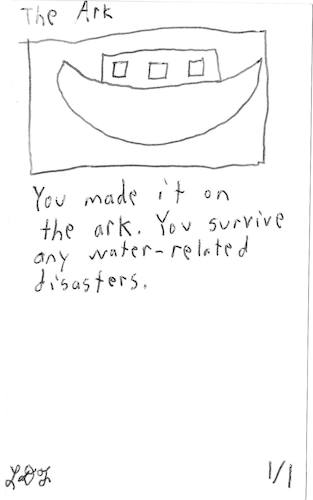 The Ark
You made it on
the ark. You survive
any water-related
disasters.
1/1